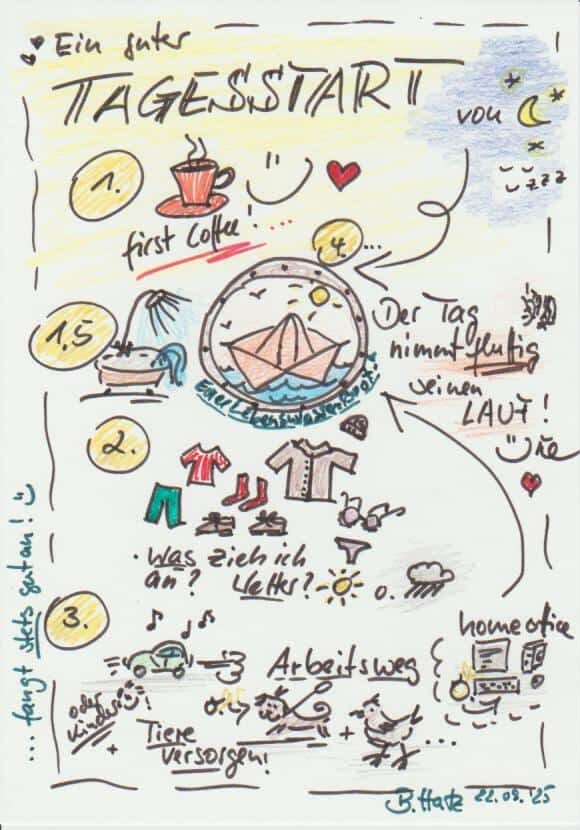 Ein guter
TAGESSTART
von
zzz
1.
first Coffee! ...
4. ...
1,5
Der Tag
nimmt fluffig
seinen
LAUF!
2.
• Was zieh ich
an? Wetter? o.
3.
homeoffice
Arbeitsweg
oder
Kinder
!
+
Tiere
versorgen!
+
...
... fangt stets gut an!
B. Hatz 22.09.'25